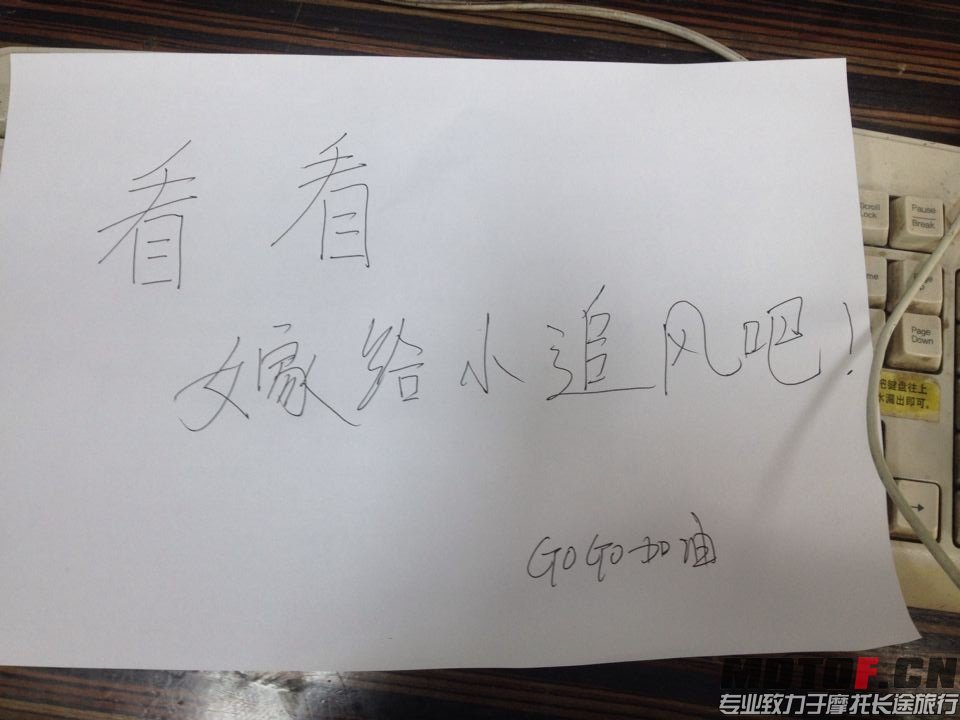 看看
嫁给小追风吧!
GOGO加油
Scroll Lock
Pause Break
Page Down
把键盘往上
水漏出即可。
→
MOTOF.CN
专业致力于摩托长途旅行